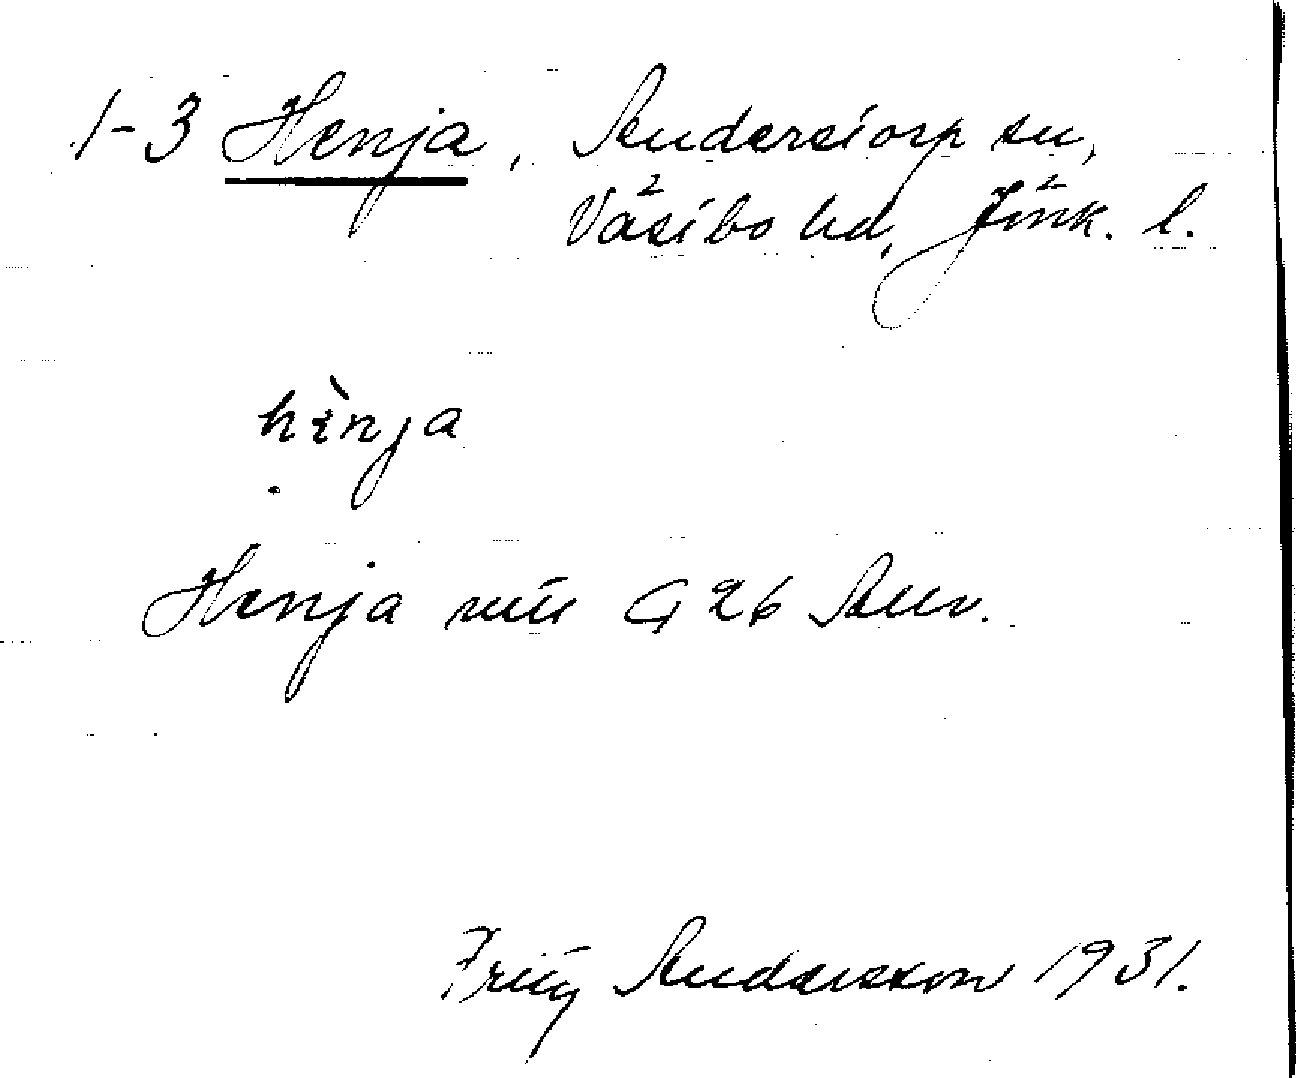 1-3 Henja, Anderstorp sn,
Västbo hd, Jönk. l.
hìnja
Henja
G 26 Anv.
Fritz Andersson 1931.